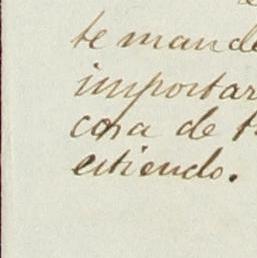 te mande
importar
cosa de t
estiendo.